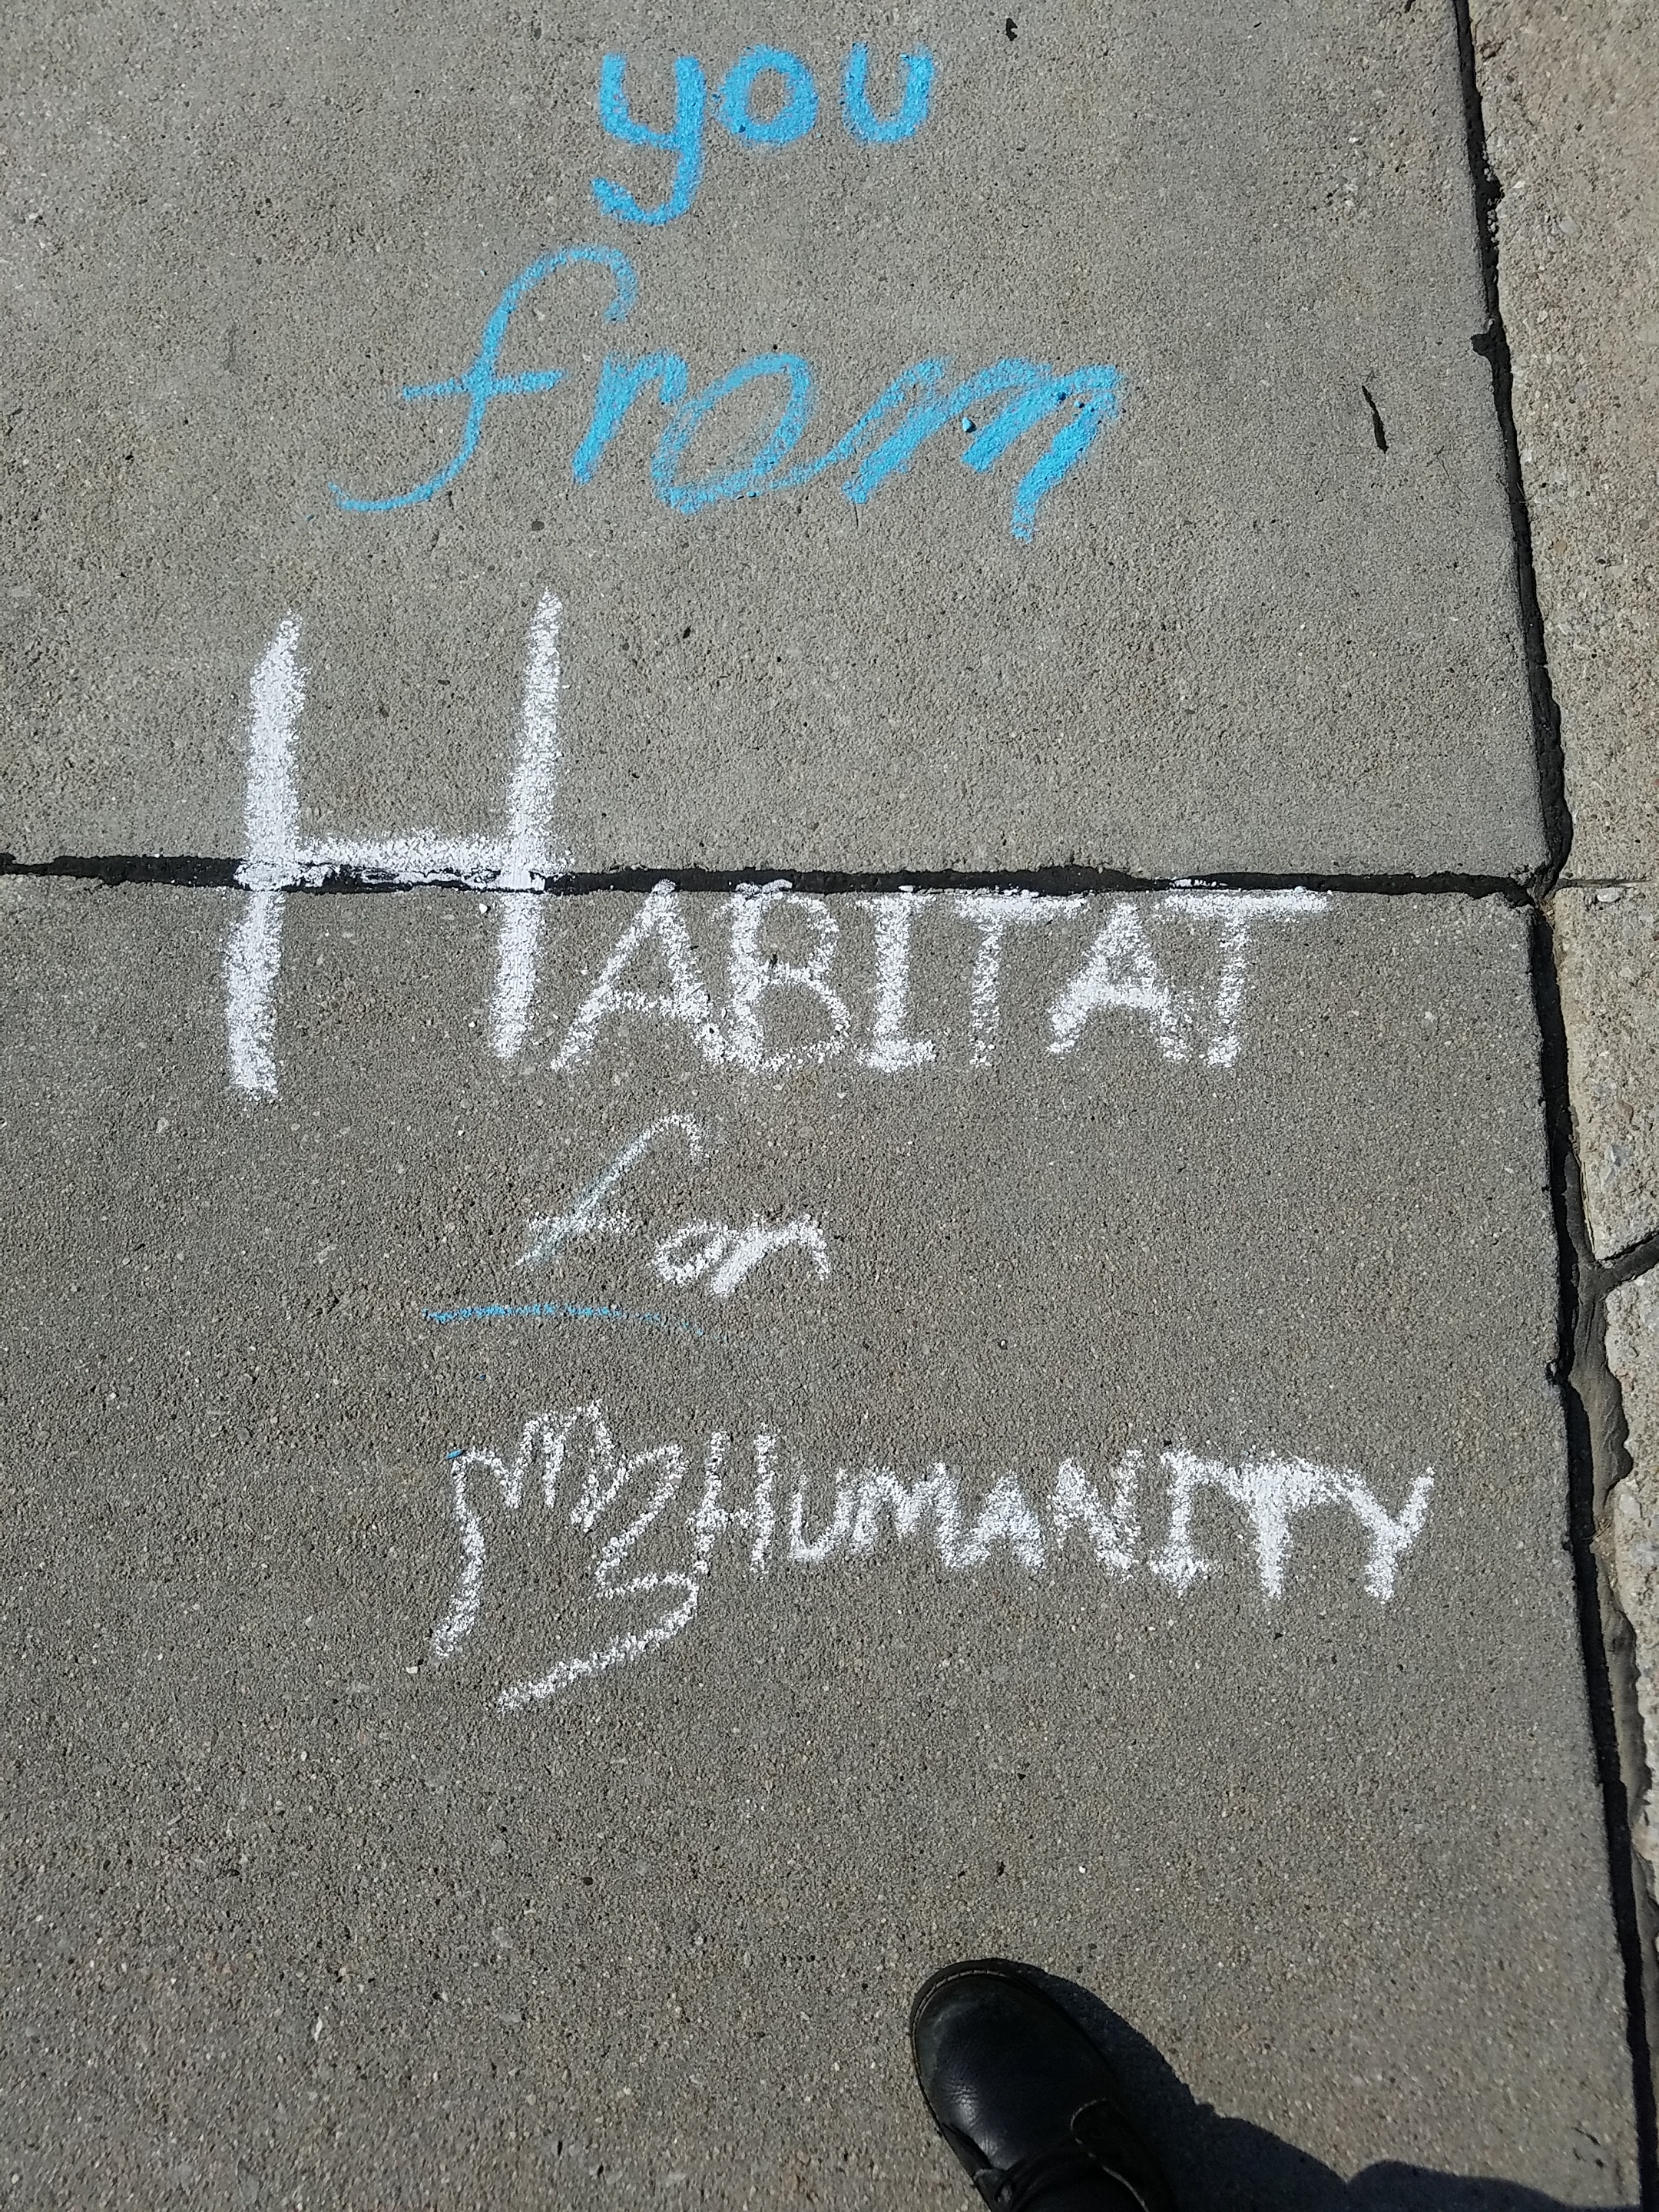 you
from
HABITAT
for
HUMANITY